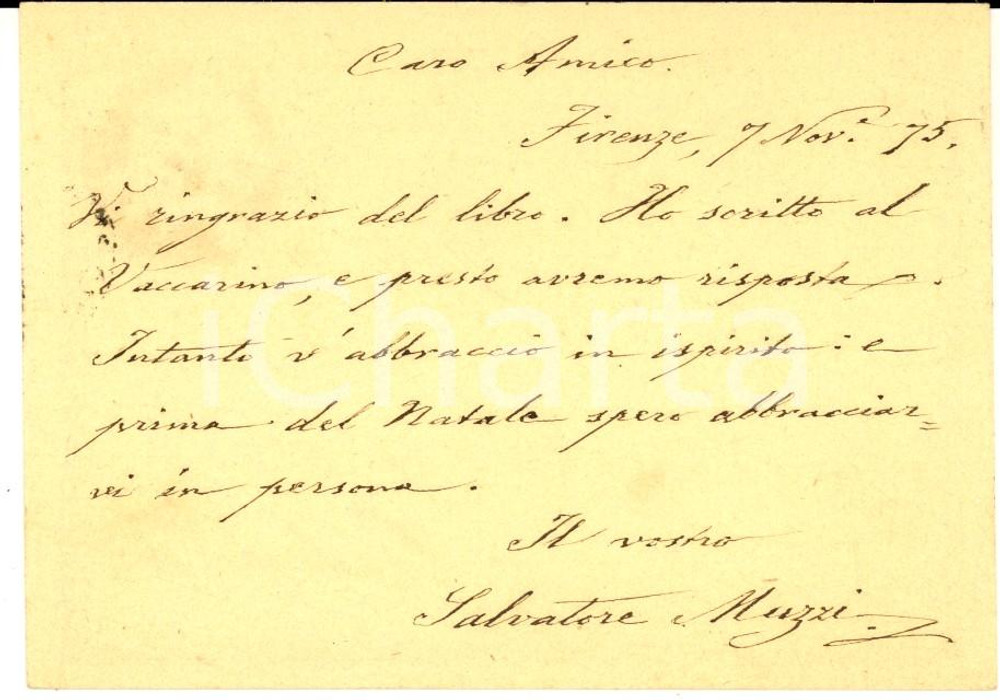 Caro Amico.
Firenze, 7 Nov.e 75.
Vi ringrazio del libro. Ho scritto al
Vaccarino, e presto avremo risposta.
Intanto v'abbraccio in ispirito: e
prima del Natale spero abbracciar=
vi in persona.
Il vostro
Salvatore Muzzi
iCharta